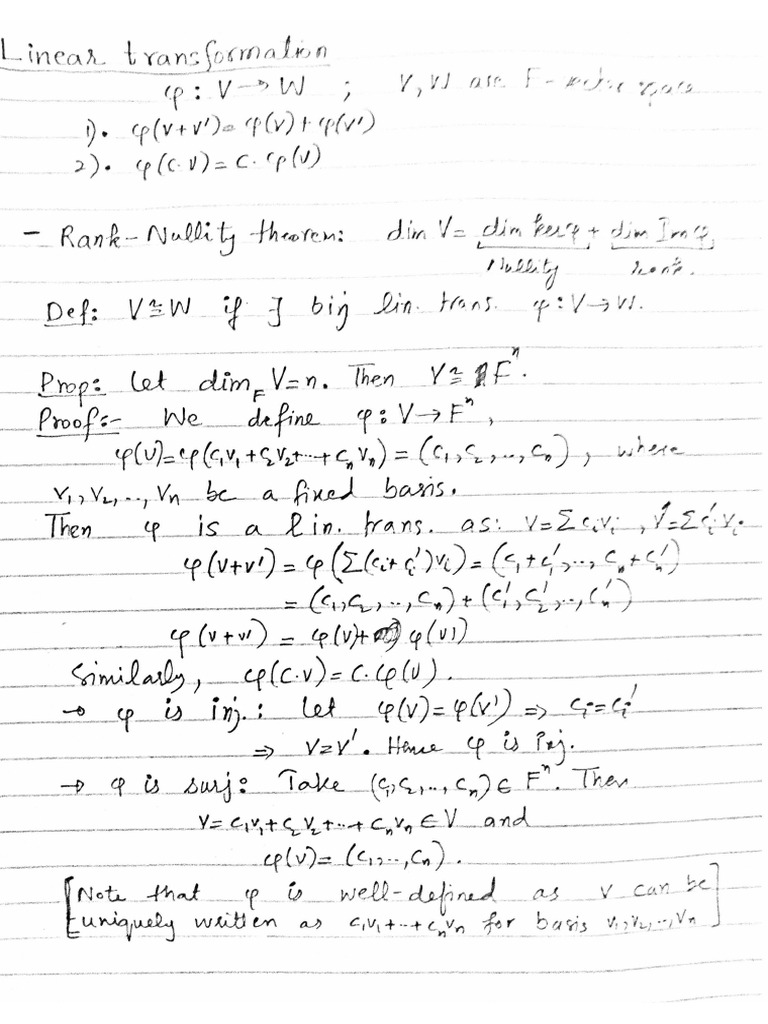 Linear transformation
φ : V → W ; V, W are F-vector space
1). φ(v+v') = φ(v) + φ(v')
2). φ(c·v) = c·φ(v)
- Rank-Nullity theorem: dim V = dim ker φ + dim Im φ,
Nullity rank.
Def: V ≅ W if ∃ bij lin. trans. φ : V → W.
Prop: Let dim_F V = n. Then V ≅ F^n.
Proof:- We define φ : V → F^n,
φ(v) = φ(c₁v₁ + c₂v₂ + ... + cₙvₙ) = (c₁, c₂, ..., cₙ), where
v₁, v₂, ..., vₙ be a fixed basis.
Then φ is a lin. trans. as: v = Σ cᵢvᵢ, v' = Σ cᵢ'vᵢ.
φ(v+v') = φ(Σ(cᵢ + cᵢ')vᵢ) = (c₁ + c₁', ..., cₙ + cₙ')
= (c₁, c₂, ..., cₙ) + (c₁', c₂', ..., cₙ')
φ(v+v') = φ(v) + φ(v')
Similarly, φ(c·v) = c·φ(v).
→ φ is inj.: Let φ(v) = φ(v') ⇒ cᵢ = cᵢ'
⇒ v = v'. Hence φ is inj.
→ φ is surj: Take (c₁, c₂, ..., cₙ) ∈ F^n. Then
v = c₁v₁ + c₂v₂ + ... + cₙvₙ ∈ V and
φ(v) = (c₁, ..., cₙ).
[Note that φ is well-defined as v can be
uniquely written as c₁v₁ + ... + cₙvₙ for basis v₁, v₂, ..., vₙ]